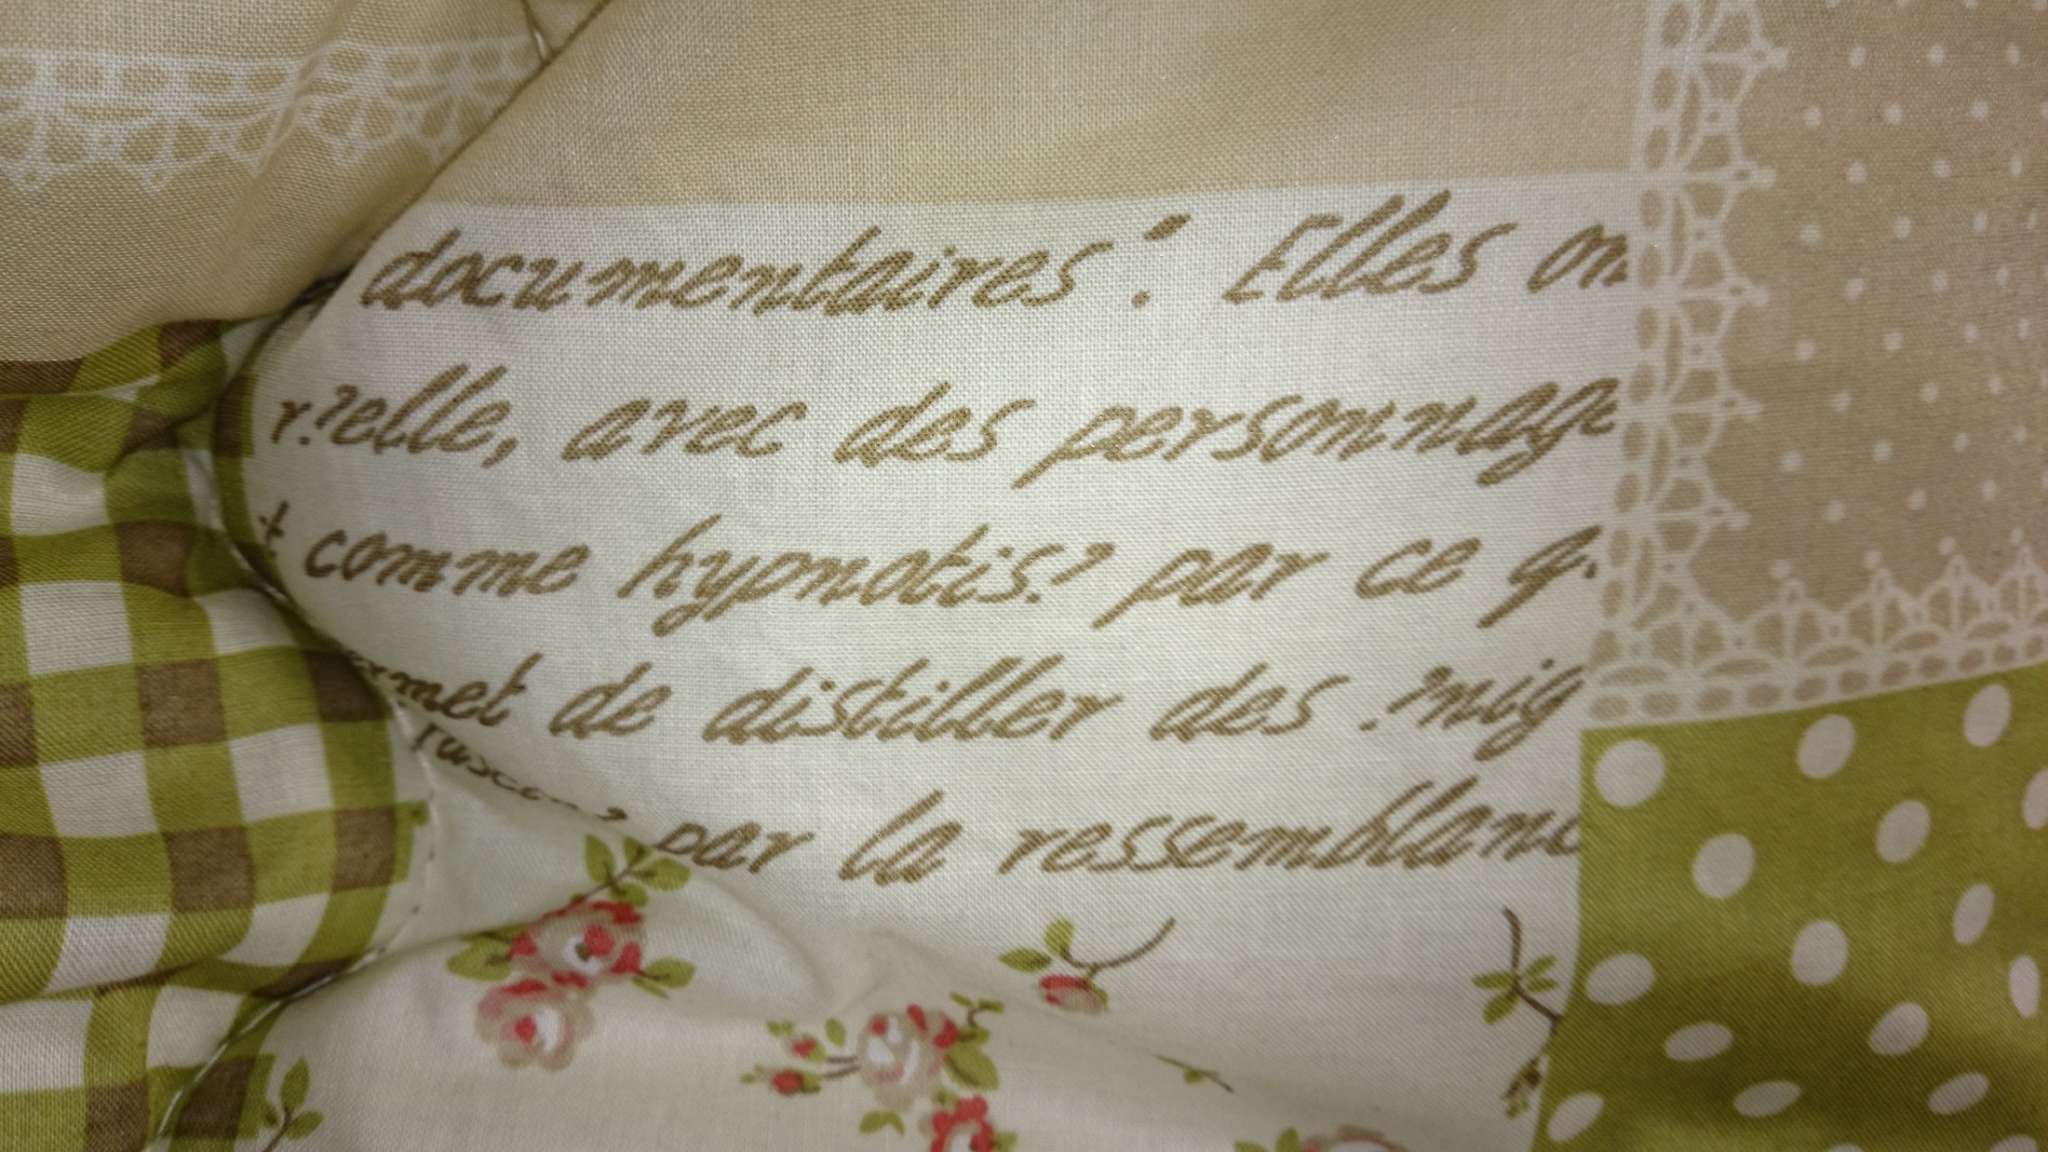 documentaires :' Elles on
r.?elle, avec des personnage
t comme hypnotis.? par ce q.
met de distiller des .?nig
par la ressemblanc